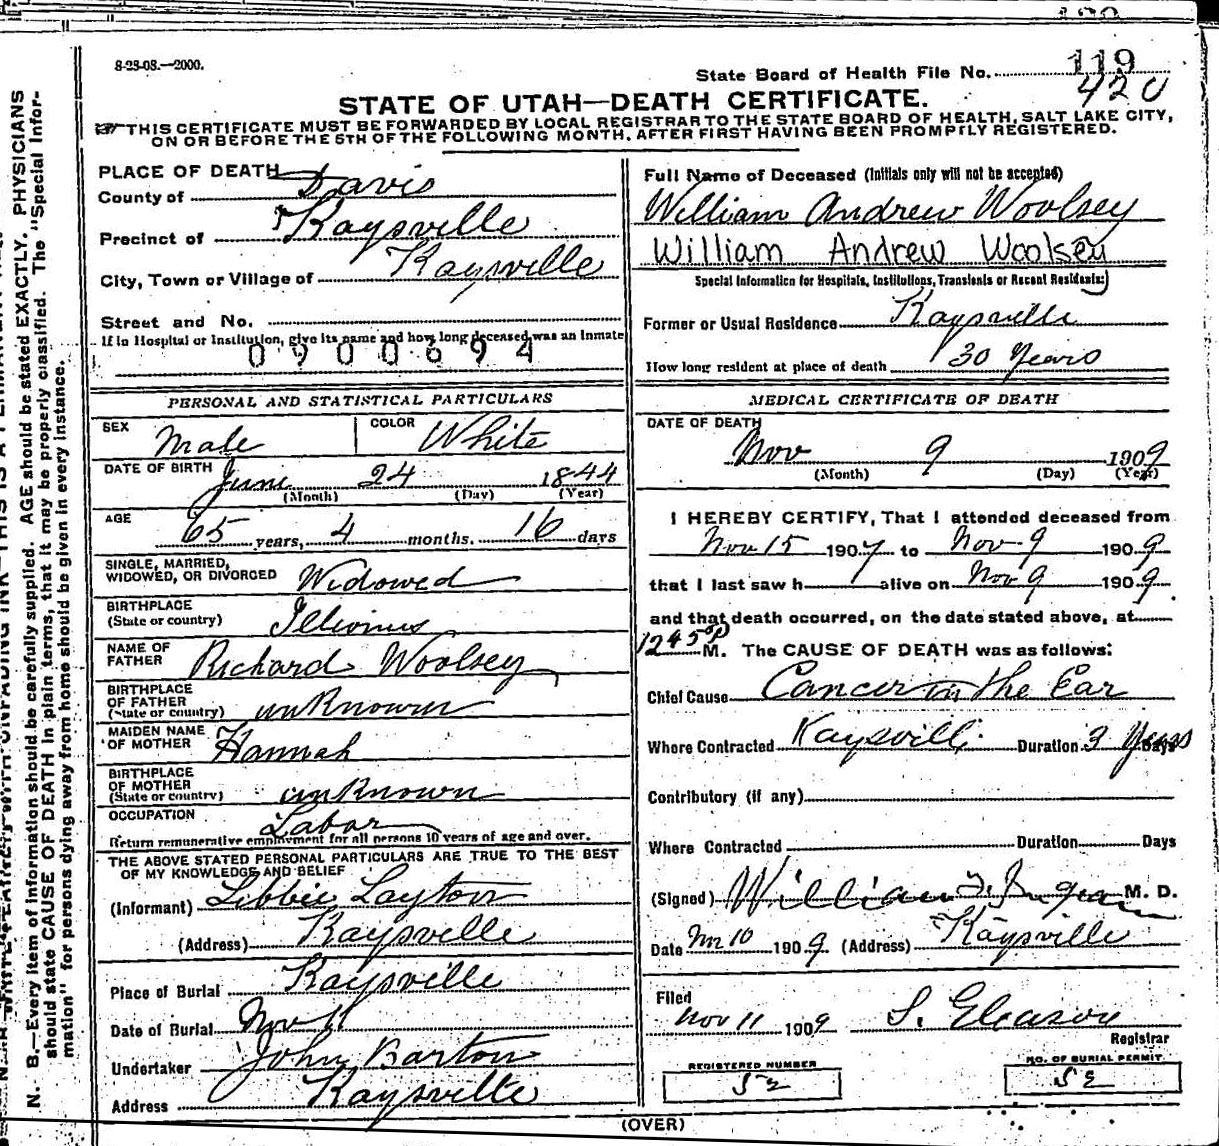 8-23-08.—2000.
State Board of Health File No. 119
420
STATE OF UTAH—DEATH CERTIFICATE.
THIS CERTIFICATE MUST BE FORWARDED BY LOCAL REGISTRAR TO THE STATE BOARD OF HEALTH, SALT LAKE CITY,
ON OR BEFORE THE 5TH OF THE FOLLOWING MONTH, AFTER FIRST HAVING BEEN PROMPTLY REGISTERED.
PLACE OF DEATH
County of Davis
Precinct of Kaysville
City, Town or Village of Kaysville
Street and No.
If in Hospital or Institution, give its name and how long deceased was an Inmate
0900694
PERSONAL AND STATISTICAL PARTICULARS
SEX Male COLOR White
DATE OF BIRTH June 24 1844
(Month) (Day) (Year)
AGE
65 years, 4 months. 16 days
SINGLE, MARRIED,
WIDOWED, OR DIVORCED Widowed
BIRTHPLACE
(State or country) Illionus
NAME OF
FATHER Richard Woolsey
BIRTHPLACE
OF FATHER
(State or country) unknown
MAIDEN NAME
OF MOTHER Hannah
BIRTHPLACE
OF MOTHER
(State or country) unknown
OCCUPATION Labor
Return remunerative employment for all persons 10 years of age and over.
THE ABOVE STATED PERSONAL PARTICULARS ARE TRUE TO THE BEST
OF MY KNOWLEDGE AND BELIEF
(Informant) Libbie Layton
(Address) Kaysville
Place of Burial Kaysville
Date of Burial Nov 11
Undertaker John Barton
Address Kaysville
Full Name of Deceased (Initials only will not be accepted)
William Andrew Woolsey
William Andrew Woolsey
Special Information for Hospitals, Institutions, Transients or Recent Residents:
Former or Usual Residence Kaysville
How long resident at place of death 30 Years
MEDICAL CERTIFICATE OF DEATH
DATE OF DEATH
Nov 9 1909
(Month) (Day) (Year)
I HEREBY CERTIFY, That I attended deceased from
Nov 15 1907 to Nov 9 1909
that I last saw h alive on Nov 9 1909
and that death occurred, on the date stated above, at
1245 P M. The CAUSE OF DEATH was as follows:
Chief Cause Cancer in the Ear
Where Contracted Kaysville Duration 3 Years Days
Contributory (if any)
Where Contracted Duration Days
(Signed) William M. D.
Date Nov 10 1909 (Address) Kaysville
Filed
Nov 11 1909 S. Gleason
Registrar
REGISTERED NUMBER
52
NO. OF BURIAL PERMIT
52
(OVER)
N. B.—Every item of information should be carefully supplied. AGE should be stated EXACTLY. PHYSICIANS
should state CAUSE OF DEATH in plain terms, that it may be properly classified. The "Special Infor-
mation" for persons dying away from home should be given in every instance.